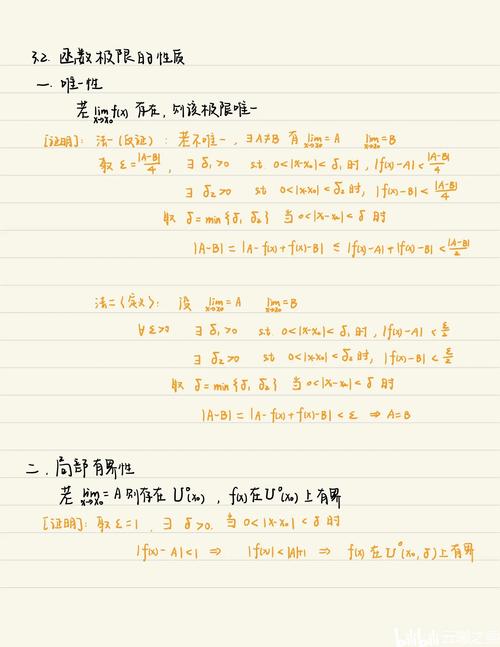 3.2. 函数极限的性质
一. 唯一性
若 lim_{x→x₀} f(x) 存在, 则该极限唯一
[证明]: 法一(反证): 若不唯一, ∃A≠B 有 lim_{x→x₀} = A  lim_{x→x₀} = B
取 ε = |A-B|/4, ∃ δ₁>0 st. 0<|x-x₀|<δ₁时, |f(x)-A|<|A-B|/4
∃ δ₂>0 st 0<|x-x₀|<δ₂时, |f(x)-B|<|A-B|/4
取 δ=min{δ₁, δ₂} 当 0<|x-x₀|<δ 时
|A-B| = |A-f(x)+f(x)-B| ≤ |f(x)-A|+|f(x)-B| < |A-B|/2
法二(定义): 设 lim_{x→x₀} = A  lim_{x→x₀} = B
∀ε>0 ∃ δ₁>0 s.t. 0<|x-x₀|<δ₁时, |f(x)-A| < ε/2
∃ δ₂>0 st 0<|x-x₀|<δ₂时, |f(x)-B| < ε/2
取 δ=min{δ₁, δ₂} 当 0<|x-x₀|<δ 时
|A-B| = |A-f(x)+f(x)-B| < ε ⇒ A=B
二. 局部有界性
若 lim_{x→x₀} = A 则存在 U°(x₀), f(x)在U°(x₀)上有界
[证明]: 取 ε=1, ∃ δ>0, 当 0<|x-x₀|<δ 时
|f(x)-A|<1 ⇒ |f(x)|<|A|+1 ⇒ f(x)在U°(x₀,δ)上有界
bilibili